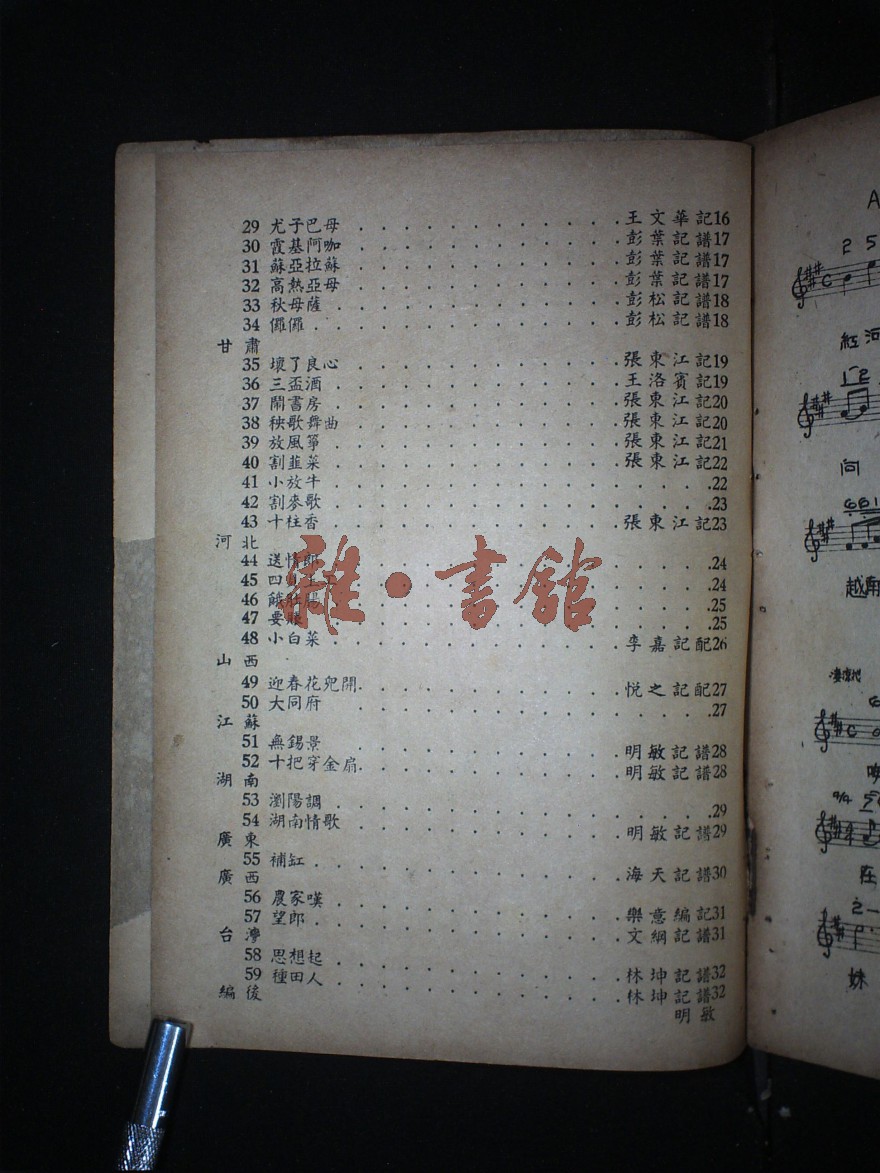 29 尤子巴母 . . . . . . . . . . . . 王文華記16
30 霞基阿咖 . . . . . . . . . . . . 彭葉記譜17
31 蘇亞拉蘇 . . . . . . . . . . . . 彭葉記譜17
32 高熱亞母 . . . . . . . . . . . . 彭葉記譜17
33 秋母薩 . . . . . . . . . . . . 彭松記譜18
34 儸儸 . . . . . . . . . . . . 彭松記譜18
甘肅
35 壞了良心 . . . . . . . . . . . . 張東江記19
36 三盃酒 . . . . . . . . . . . . 王洛賓記19
37 鬧書房 . . . . . . . . . . . . 張東江記20
38 秧歌舞曲 . . . . . . . . . . . . 張東江記20
39 放風箏 . . . . . . . . . . . . 張東江記21
40 割韮菜 . . . . . . . . . . . . 張東江記22
41 小放牛 . . . . . . . . . . . . 22
42 割麥歌 . . . . . . . . . . . . 23
43 十柱香 . . . . . . . . . . . . 張東江記23
河北
44 送情郎 . . . . . . . . . . . . 24
45 四 . . . . . . . . . . . . 24
46 . . . . . . . . . . . . 25
47 要 . . . . . . . . . . . . 25
48 小白菜 . . . . . . . . . . . . 李嘉記配26
山西
49 迎春花兒開 . . . . . . . . . . . . 悅之記配27
50 大同府 . . . . . . . . . . . . 27
江蘇
51 無錫景 . . . . . . . . . . . . 明敏記譜28
52 十把穿金扇 . . . . . . . . . . . . 明敏記譜28
湖南
53 瀏陽調 . . . . . . . . . . . . 29
54 湖南情歌 . . . . . . . . . . . . 明敏記譜29
廣東
55 補缸 . . . . . . . . . . . . 海天記譜30
廣西
56 農家嘆 . . . . . . . . . . . . 樂意編記31
57 望郎 . . . . . . . . . . . . 文綱記譜31
台灣
58 思想起 . . . . . . . . . . . . 林坤記譜32
59 種田人 . . . . . . . . . . . . 林坤記譜32
編後 明敏
雜·書館
A
2 5
紅河
1 2
向
6 6 1
越南
淒涼地
9/4
在
2 —
妹